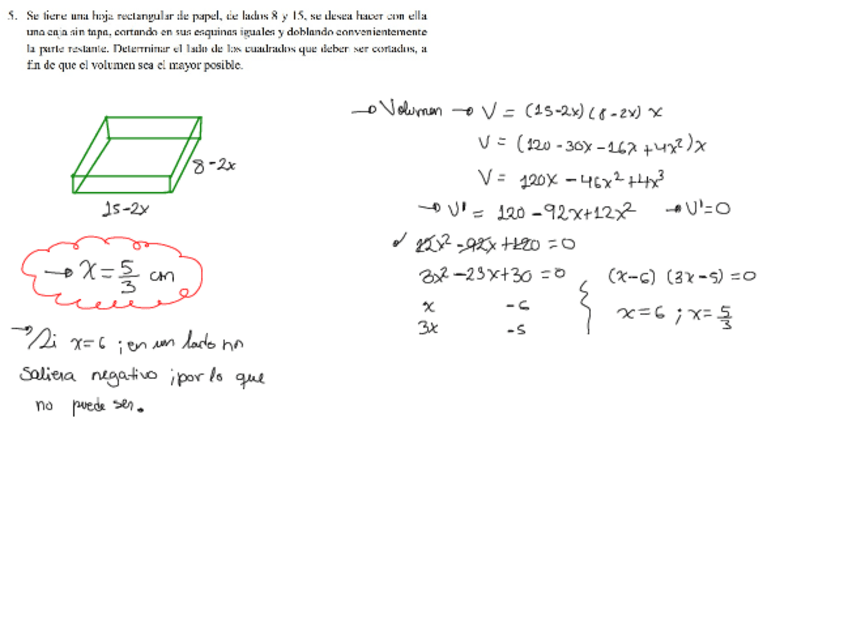 5. Se tiene una hoja rectangular de papel, de lados 8 y 15, se desea hacer con ella
una caja sin tapa, cortando en sus esquinas iguales y doblando convenientemente
la parte restante. Determinar el lado de los cuadrados que deber ser cortados, a
fin de que el volumen sea el mayor posible.
8-2x
15-2x
→ x = 5/3 cm
→ Si x=6 ; en un lado no
saliera negativo ; por lo que
no puede ser.
→ Volumen → V = (15-2x)(8-2x) x
V = (120 - 30x - 16x + 4x²)x
V = 120x - 46x² + 4x³
→ V' = 120 - 92x + 12x² → V'=0
✓ 12x² - 92x + 120 = 0
3x² - 23x + 30 = 0
x -6
3x -5
(x-6) (3x-5) = 0
x = 6 ; x = 5/3